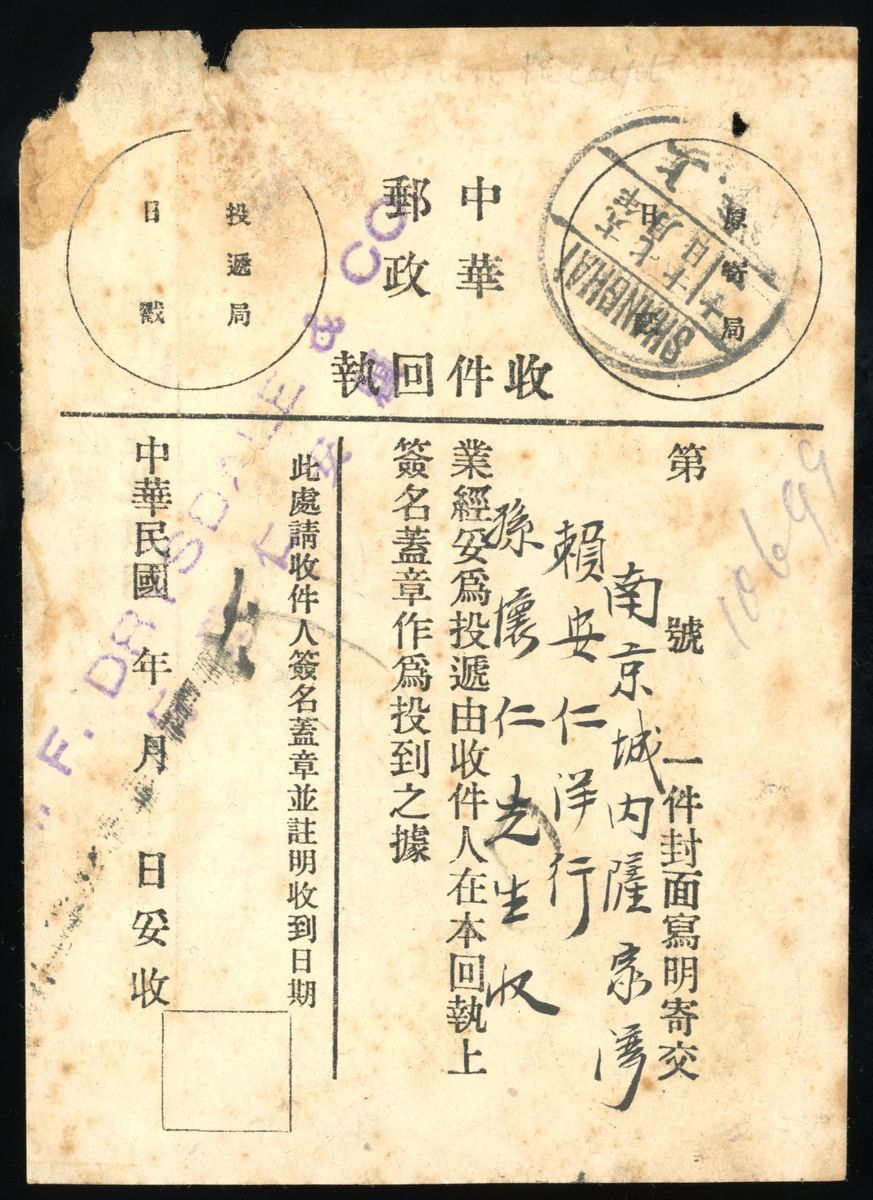 Return Receipt
中華
郵政
收件回執
原寄局
日戳
SHANGHAI
投遞局
日戳
10699
第 號 一件封面寫明寄交
南京城内薩家灣
賴安仁洋行
孫懷仁先生收
業經妥爲投遞由收件人在本回執上
簽名蓋章作爲投到之據
此處請收件人簽名蓋章並註明收到日期
F. DRYSDALE & CO
中華民國 年 月 日妥收